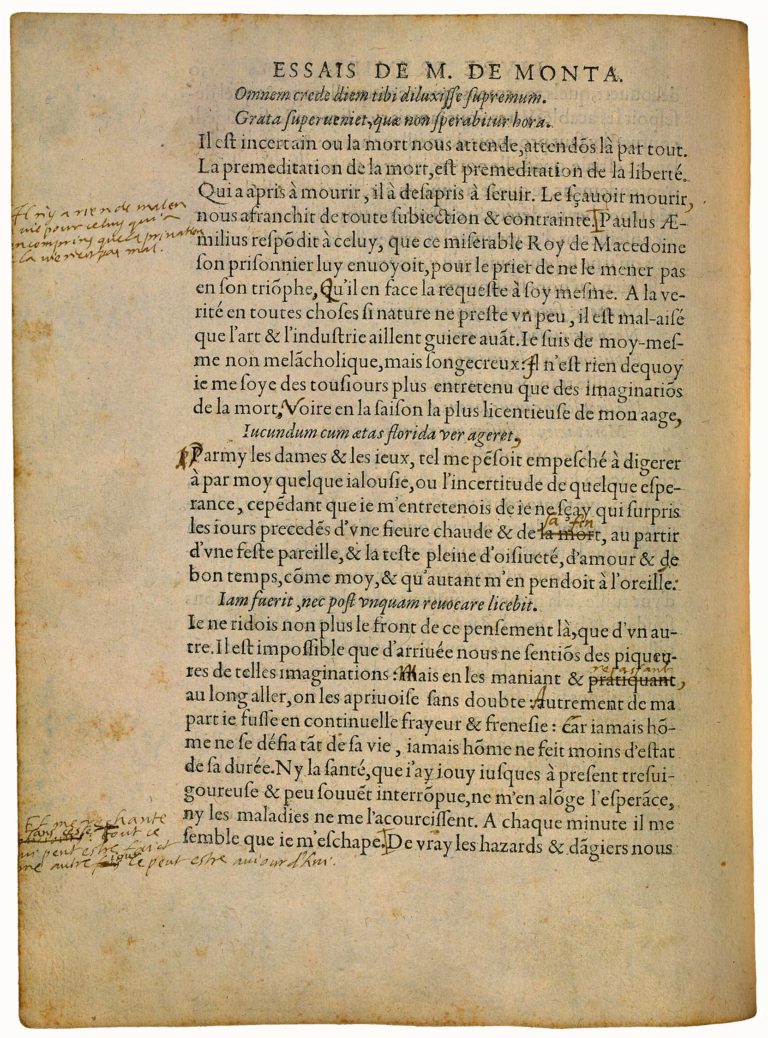 ESSAIS DE M. DE MONTA.
Omnem crede diem tibi diluxiſſe ſupremum.
Grata ſuperueniet, quæ non ſperabitur hora.
Il eſt incertain ou la mort nous attende, attendõs là par tout.
La premeditation de la mort, eſt premeditation de la liberté.
Qui a apris à mourir, il à deſapris à ſeruir. Le ſçauoir mourir,
nous afranchit de toute ſubiection & contrainte. Paulus Æ-
milius reſpõdit à celuy, que ce miſerable Roy de Macedoine
ſon priſonnier luy enuoyoit, pour le prier de ne le mener pas
en ſon triõphe, Qu'il en face la requeſte à ſoy meſme. A la ve-
rité en toutes choſes ſi nature ne preſte vn peu, il eſt mal-aiſé
que l'art & l'induſtrie aillent guiere auãt. Ie ſuis de moy-meſ-
me non melãcholique, mais ſongecreux: Il n'eſt rien dequoy
ie me ſoye des touſiours plus entretenu que des imaginatiõs
de la mort, Voire en la ſaiſon la plus licentieuſe de mon aage,
Iucundum cum ætas florida ver ageret,
Parmy les dames & les ieux, tel me pẽſoit empeſché à digerer
à par moy quelque ialouſie, ou l'incertitude de quelque eſpe-
rance, cepẽdant que ie m'entretenois de ie ne ſçay qui ſurpris
les iours precedẽs d'vne fieure chaude & de la mort, au partir
sa fin
d'vne feſte pareille, & la teſte pleine d'oiſiueté, d'amour & de
bon temps, cõme moy, & qu'autant m'en pendoit à l'oreille:
Iam fuerit, nec poſt vnquam reuocare licebit.
Ie ne ridois non plus le front de ce penſement là, que d'vn au-
tre. Il eſt impoſſible que d'arriuée nous ne ſentiõs des piqueu-
res de telles imaginations: Mais en les maniant & pratiquant,
repassant
au long aller, on les apriuoiſe ſans doubte: Autrement de ma
part ie fuſſe en continuelle frayeur & freneſie: Car iamais hõ-
me ne ſe défia tãt de ſa vie, iamais hõme ne feit moins d'eſtat
de ſa durée. Ny la ſanté, que i'ay iouy iuſques à preſent treſui-
goureuſe & peu ſouuẽt interrõpue, ne m'en alõge l'eſperãce,
ny les maladies ne me l'acourciſſent. A chaque minute il me
ſemble que ie m'eſchape. De vray les hazards & dãgiers nous
Il n'y a rien de mal en
vie pour celuy qui a
comprins que la privation
la vie n'est pas mal.
Et me rechante
sans cesse Tout ce
peut estre faict
autre jour le peut estre aujourd'hui.